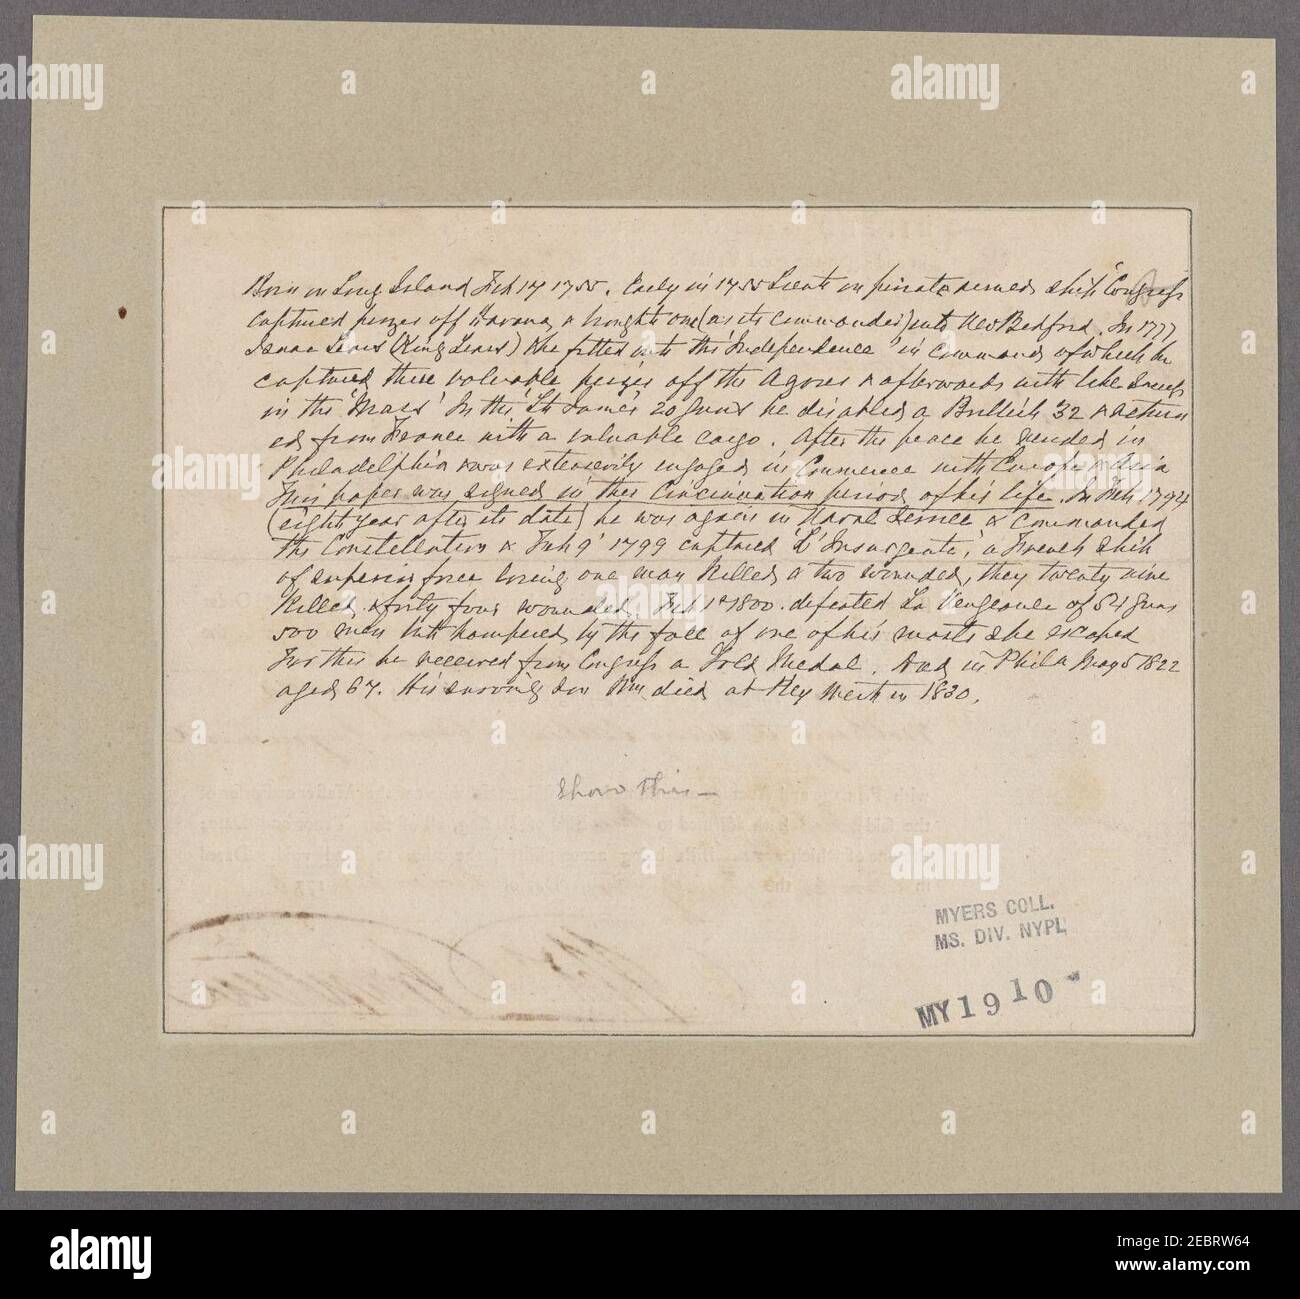 Born in Long Island Feb 17 1755. Early in 1755 Lieut on private armed ship 'Congress
captured prizes off Havana & brought one (as its commander) into New Bedford. In 1777
Isaac Sears (King Sears) & he fitted out the 'Independence' in command of which he
captured three valuable prizes off the Azores & afterwards with like success
in the 'Mars' In the 'St James 20 guns he disabled a British 32 & return
ed from France with a valuable cargo. After the peace he resided in
Philadelphia & was extensively engaged in Commerce with Europe & Asia
This paper was signed in this Cincinnation period of his life. In Feb 1794
(eight year after its date) he was again in Naval Service & commanded
the Constellation & Feb 9' 1799 captured 'L'Insurgente,' a French ship
of superior force losing one man killed & two wounded, they twenty nine
killed & forty four wounded. Feb 1st 1800. defeated La Vengeance of 54 guns
500 men but hampered by the fall of one of his masts she escaped
For this he received from Congress a Gold Medal. Died in Phila May 5 1822
aged 67. His surviving son Wm died at Key West in 1830.
Show this —
MYERS COLL.
MS. DIV. NYPL
MY 1910
alamy
Image ID: 2EBRW64
www.alamy.com